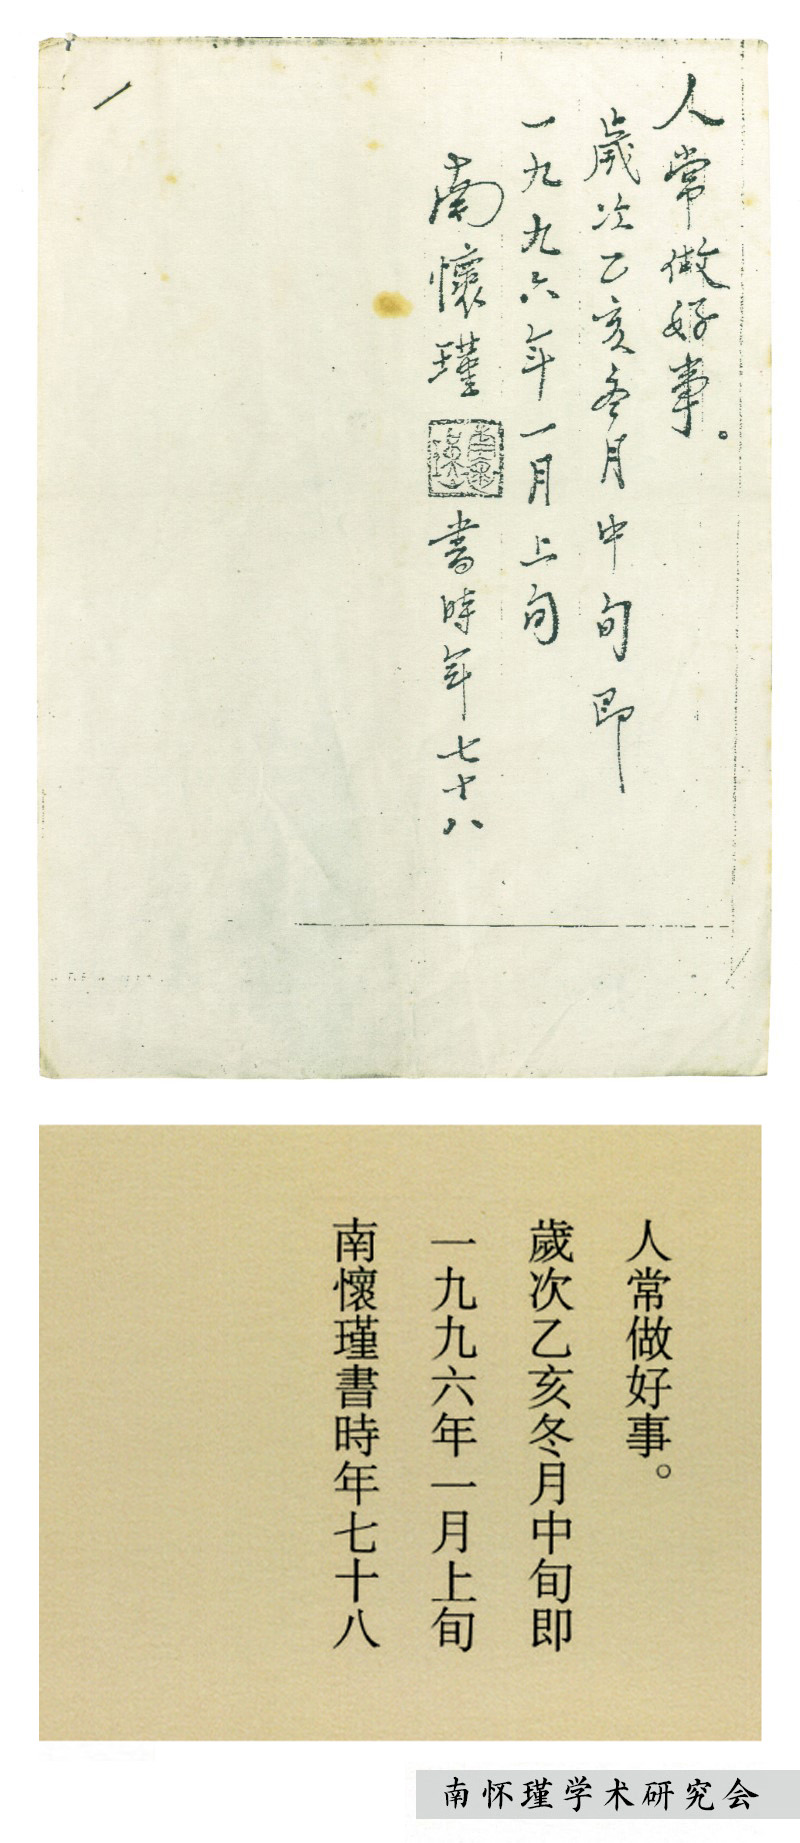 人常做好事。
歲次乙亥冬月中旬即
一九九六年一月上旬
南懷瑾書時年七十八
人常做好事。
歲次乙亥冬月中旬即
一九九六年一月上旬
南懷瑾書時年七十八
南怀瑾学术研究会